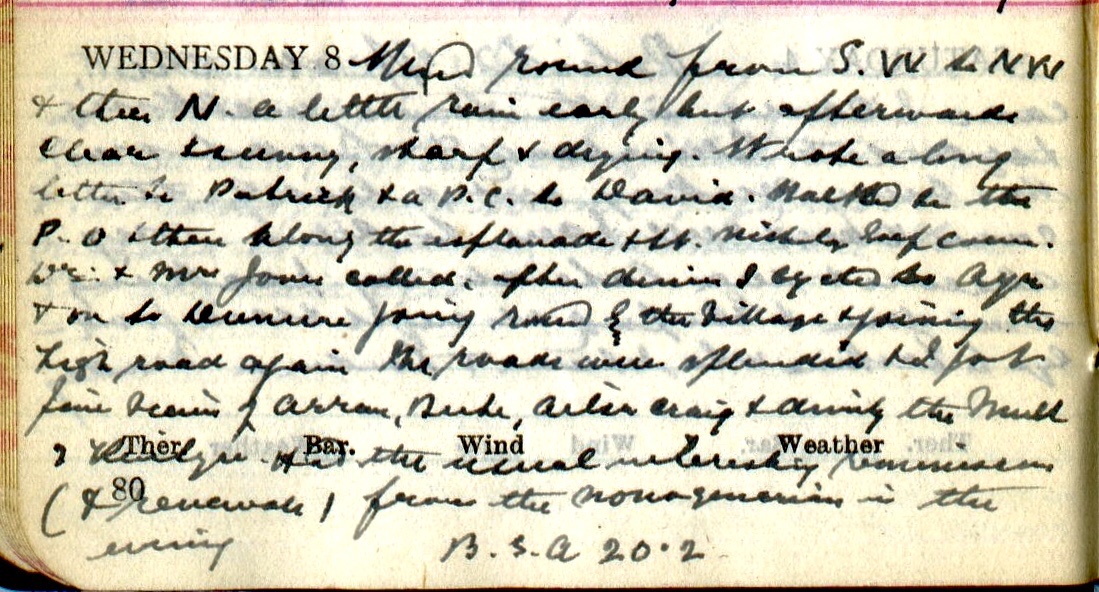 WEDNESDAY 8 Wind round from S.W to NW
& then N. a little rain early but afterwards
clear & sunny, sharp & drying. Wrote a long
letter to Patrick & a P.C. to David. Walked to the
P.O & then along the esplanade & St.
Dr. & Mrs Jones called. after dinner I cycled to Ayr
& on to Dunure going round by the village & joining the
high road again the roads were splendid & I got
fine views of Arran, Bute, Ailsa Craig & dimly the Mull
of Kintyre. Had the usual interesting reminiscences
Ther. Bar. Wind Weather
80
(& renewals) from the nonagenarian in the
evening B.S.A 20.2